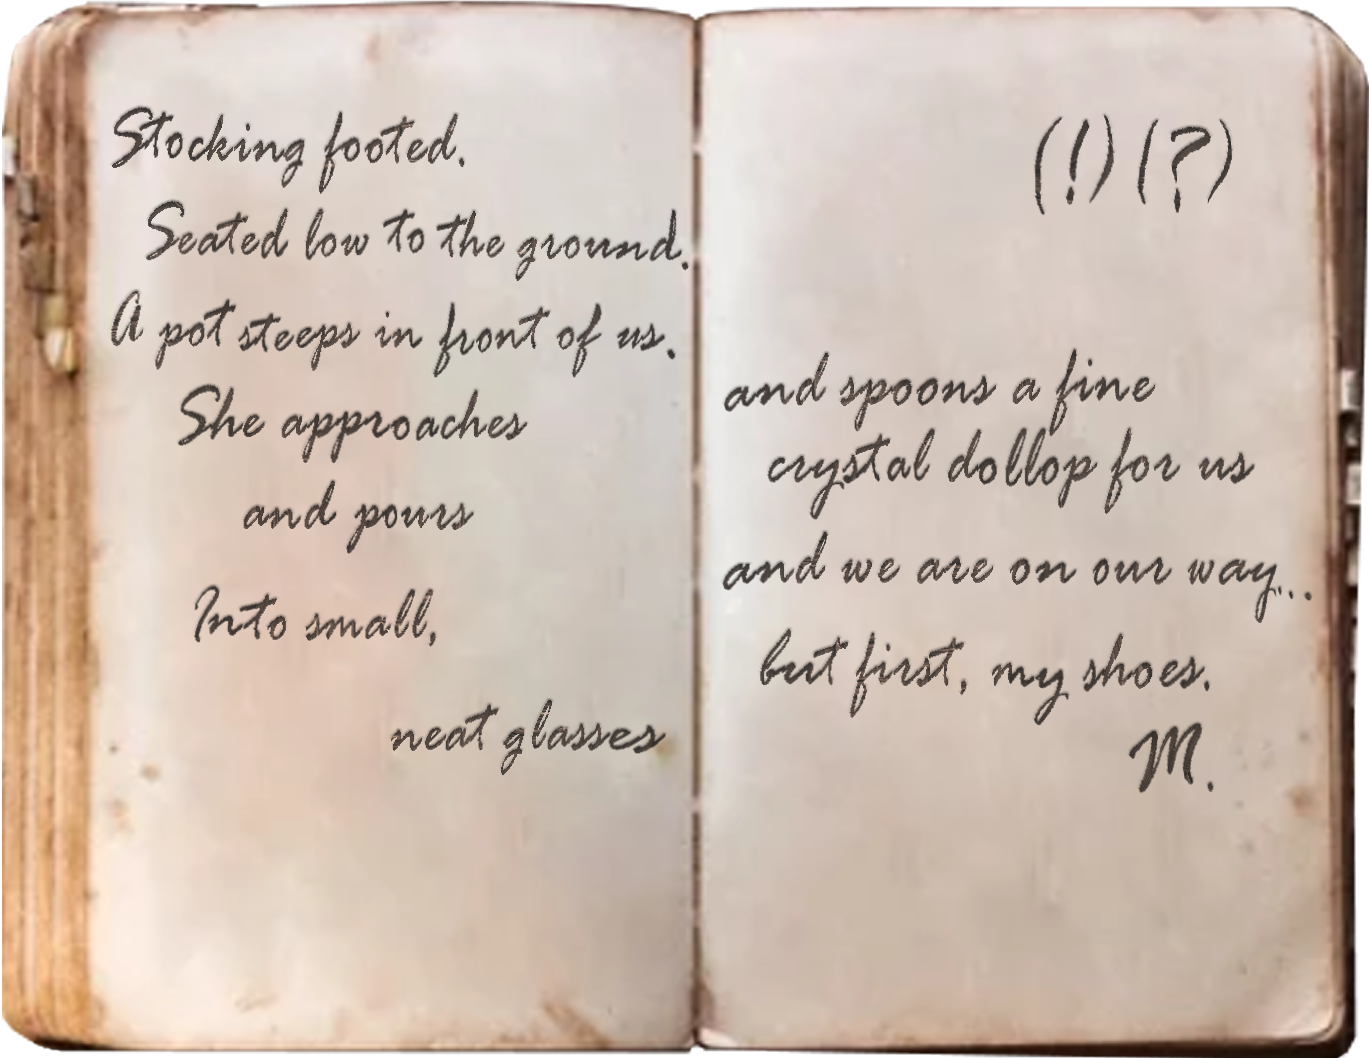 Stocking footed.
Seated low to the ground.
A pot steeps in front of us.
She approaches
and pours
Into small,
neat glasses
(!) (?)
and spoons a fine
crystal dollop for us
and we are on our way...
but first, my shoes.
M.